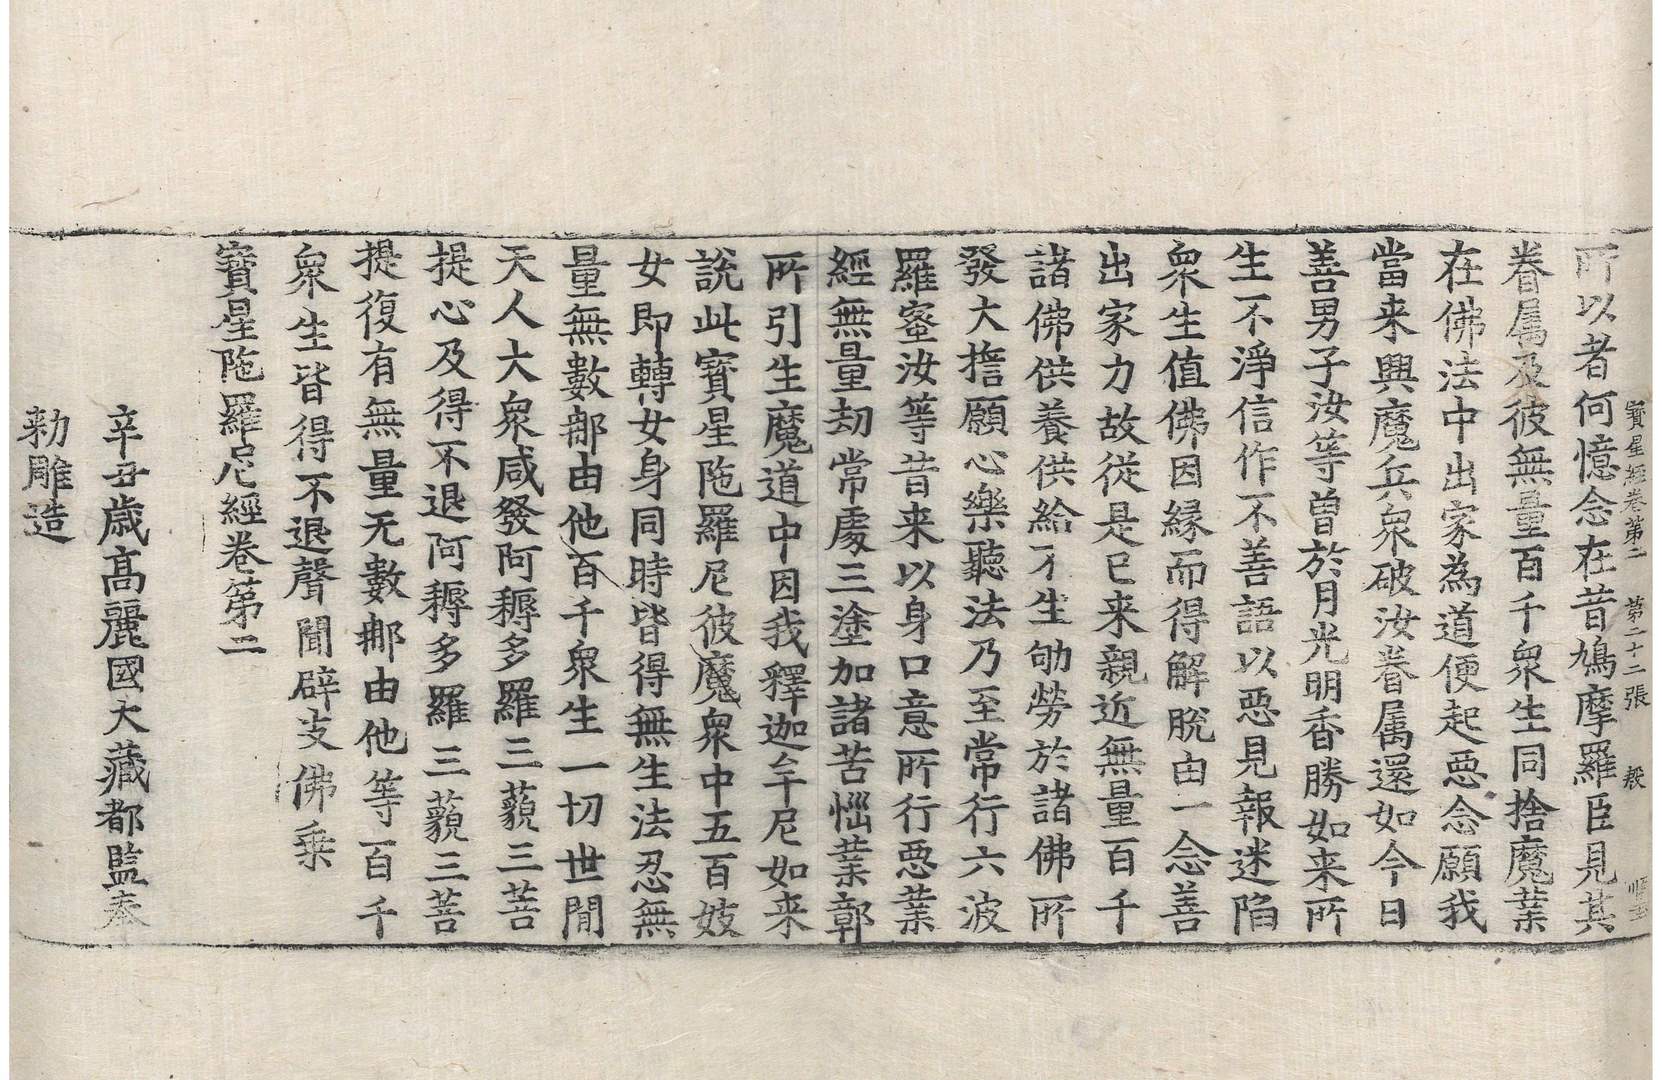 寶星經卷第二 第二十二張 殷
所以者何憶念在昔鳩摩羅臣見其
眷属及彼無量百千衆生同捨魔葉
在佛法中出家為道便起恶念願我
當来興魔兵衆破汝眷属還如今日
善男子汝等曾於月光明香勝如来所
生不淨信作不善語以惡見報迷陷
衆生值佛因縁而得解脫由一念善
出家力故從是已来親近無量百千
諸佛供養供給不生劬勞於諸佛所
發大擔願心樂聽法乃至常行六波
羅蜜汝等昔来以身口意所行恶葉
經無量劫常處三塗加諸苦惱葉鄣
所引生魔道中因我釋迦牟尼如来
說此寳星陁羅尼彼魔衆中五百妓
女即轉女身同時皆得無生法忍無
量無數那由他百千衆生一切世間
天人大衆咸發阿耨多羅三藐三菩
提心及得不退阿耨多羅三藐三菩
提復有無量无數那由他等百千
衆生皆得不退聲聞辟支佛乗
寶星陁羅尼經卷第二
辛丑歳髙麗國大藏都監奉
勑雕造